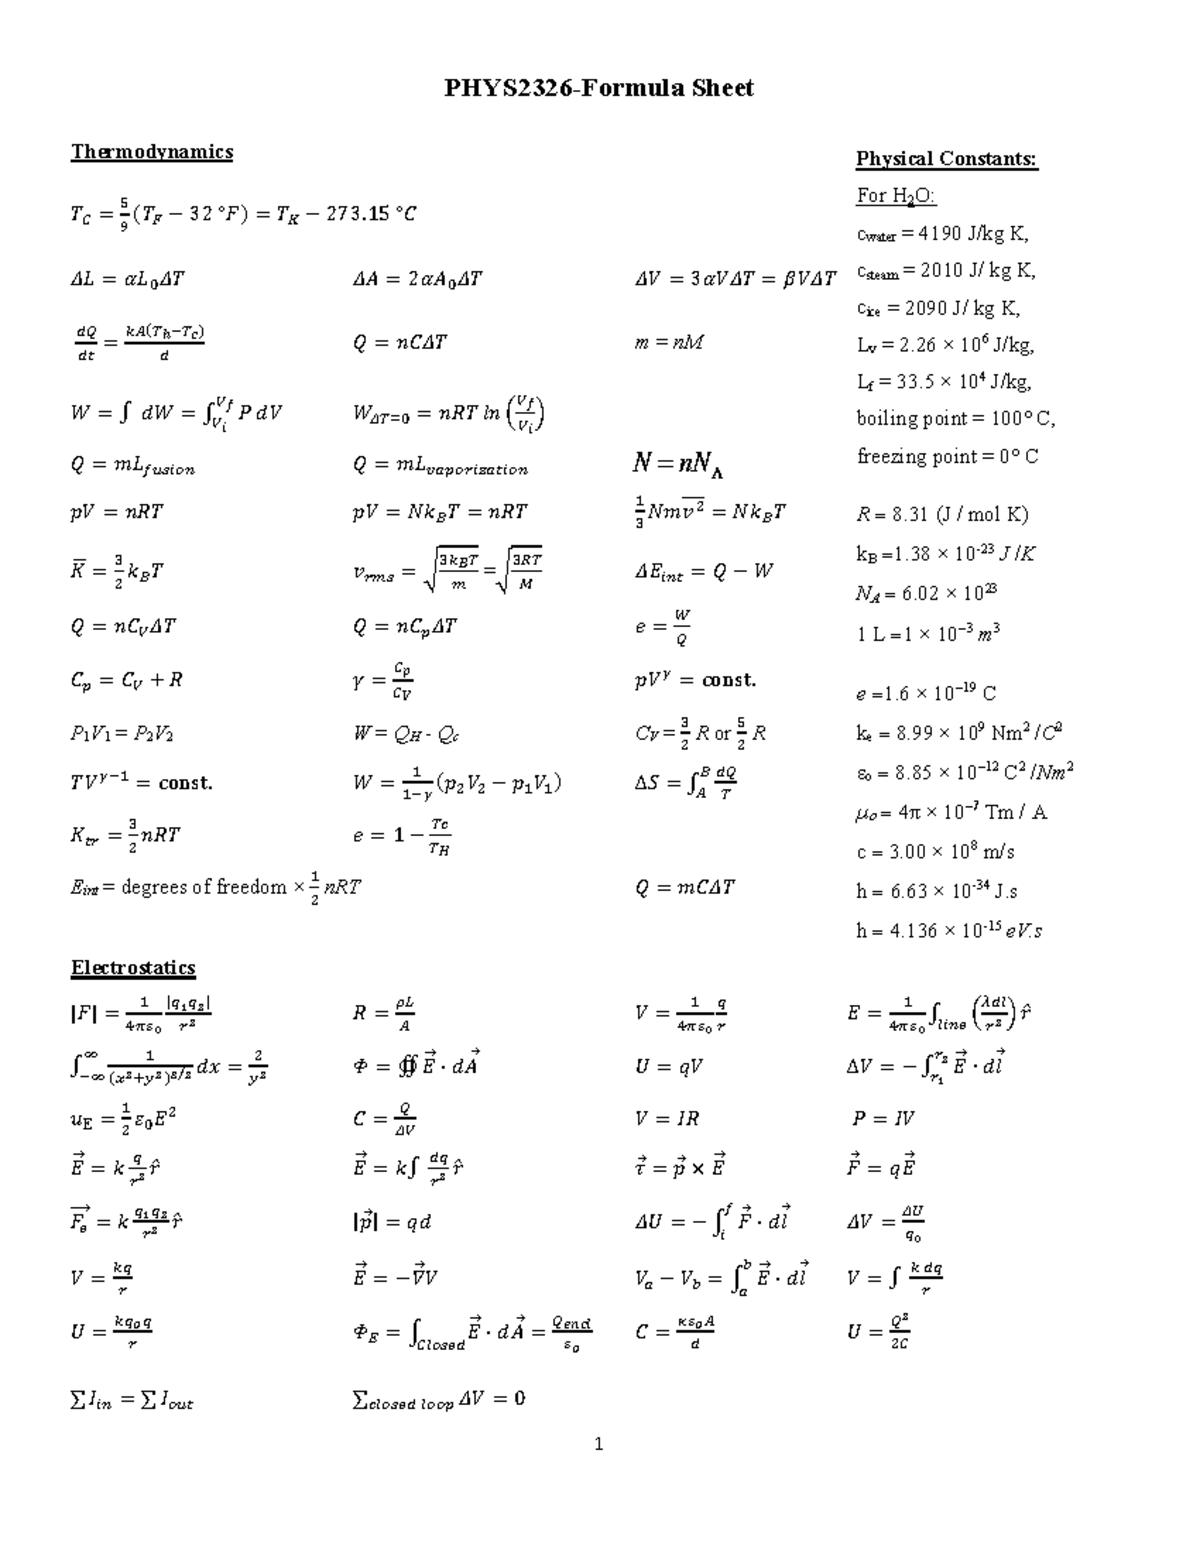 PHYS2326-Formula Sheet
Thermodynamics
T_C = 5/9 (T_F − 32 °F) = T_K − 273.15 °C
ΔL = αL_0ΔT   ΔA = 2αA_0ΔT   ΔV = 3αVΔT = βVΔT
dQ/dt = kA(T_h−T_C)/d   Q = nCΔT   m = nM
W = ∫ dW = ∫_{V_i}^{V_f} P dV   W_{ΔT=0} = nRT ln (V_f/V_i)
Q = mL_fusion   Q = mL_vaporization   N = nN_A
pV = nRT   pV = Nk_BT = nRT   1/3 Nm\overline{v^2} = Nk_BT
\overline{K} = 3/2 k_BT   v_rms = √(3k_BT/m) = √(3RT/M)   ΔE_int = Q − W
Q = nC_VΔT   Q = nC_pΔT   e = W/Q
C_p = C_V + R   γ = C_p/C_V   pV^γ = const.
P_1V_1 = P_2V_2   W = Q_H - Q_c   C_V = 3/2 R or 5/2 R
TV^{γ−1} = const.   W = 1/(1−γ) (p_2V_2 − p_1V_1)   ΔS = ∫_A^B dQ/T
K_tr = 3/2 nRT   e = 1 − Tc/T_H
E_int = degrees of freedom × 1/2 nRT   Q = mCΔT
Physical Constants:
For H_2O:
c_water = 4190 J/kg K,
c_steam = 2010 J/ kg K,
c_ice = 2090 J/ kg K,
L_v = 2.26 × 10^6 J/kg,
L_f = 33.5 × 10^4 J/kg,
boiling point = 100° C,
freezing point = 0° C
R = 8.31 (J / mol K)
k_B =1.38 × 10^{-23} J /K
N_A = 6.02 × 10^{23}
1 L =1 × 10^{−3} m^3
e =1.6 × 10^{−19} C
k_e = 8.99 × 10^9 Nm^2 /C^2
ε_o = 8.85 × 10^{−12} C^2 /Nm^2
μ_o = 4π × 10^{−7} Tm / A
c = 3.00 × 10^8 m/s
h = 6.63 × 10^{-34} J.s
h = 4.136 × 10^{-15} eV.s
Electrostatics
|F| = 1/(4πε_0) |q_1q_2|/r^2   R = ρL/A   V = 1/(4πε_0) q/r   E = 1/(4πε_0) ∫_line (λdl/r^2) r̂
∫_{−∞}^{∞} 1/(x^2+y^2)^{3/2} dx = 2/y^2   Φ = ∯ E⃗ · dA⃗   U = qV   ΔV = − ∫_{r_1}^{r_2} E⃗ · dl⃗
u_E = 1/2 ε_0E^2   C = Q/ΔV   V = IR   P = IV
E⃗ = k q/r^2 r̂   E⃗ = k∫ dq/r^2 r̂   τ⃗ = p⃗ × E⃗   F⃗ = qE⃗
F_e⃗ = k q_1q_2/r^2 r̂   |p⃗| = qd   ΔU = − ∫_i^f F⃗ · dl⃗   ΔV = ΔU/q_0
V = kq/r   E⃗ = −∇⃗V   V_a − V_b = ∫_a^b E⃗ · dl⃗   V = ∫ k dq/r
U = kq_0q/r   Φ_E = ∫_Closed E⃗ · dA⃗ = Q_encl/ε_o   C = κε_0A/d   U = Q^2/2C
∑ I_in = ∑ I_out   ∑_{closed loop} ΔV = 0
1